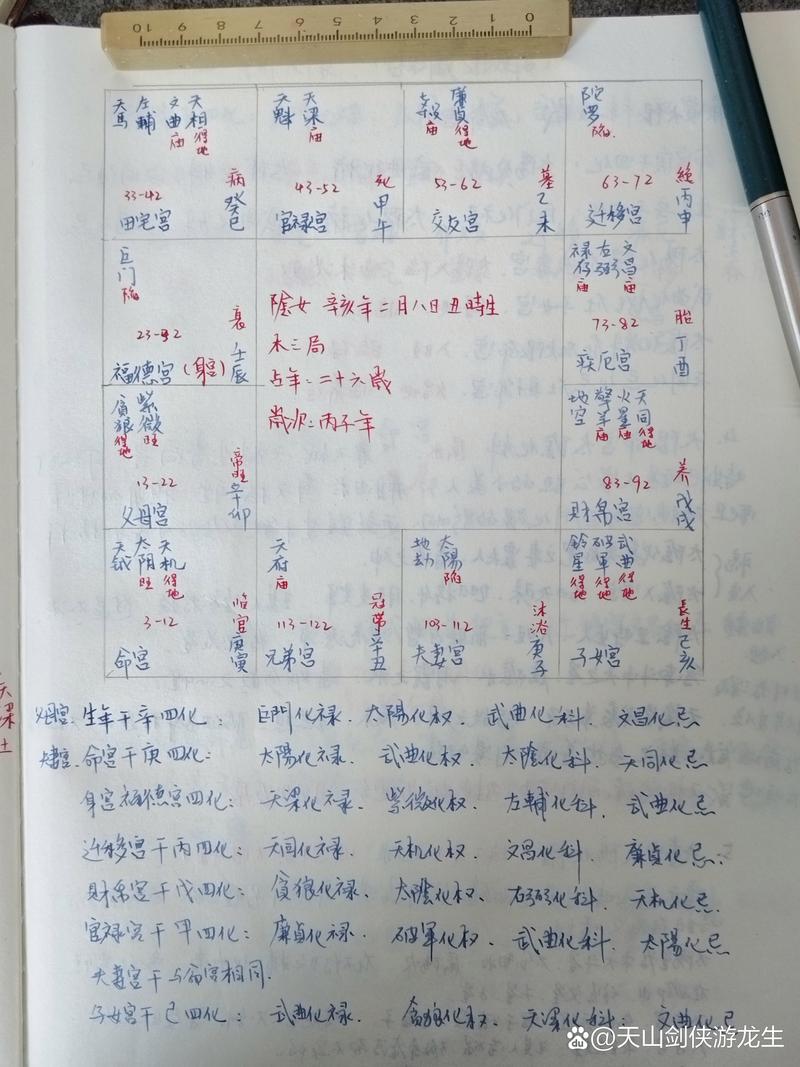 10 9 8 7 6 5 4 3 2 1 0
天馬 左輔 文曲庙 天相得地
33-42 病
田宅宫 癸巳
天魁 天梁庙
43-52 死
官禄宫 甲午
七殺庙 廉貞得地
53-62 墓
交友宫 乙未
陀罗陷
63-72 絶
迁移宫 丙申
巨门陷
23-32 衰
福德宫(身宫) 壬辰
陰女 辛亥年二月八日丑時生
木三局
占年:二十六歲
歲次:丙子年
禄存庙 右弼 文昌庙
73-82 胎
疾厄宫 丁酉
貪狼得地 紫微旺
13-22 帝旺
父母宫 辛卯
地空 擎羊庙 火星庙 天同得地
83-92 养
財帛宫 戊戌
天钺 太阴旺 天机得地
3-12 临官
命宫 庚寅
天府庙
113-122 冠帶
兄弟宫 辛丑
地劫 太陽陷
103-112 沐浴
夫妻宫 庚子
鈴星得地 破軍得地 武曲得地
長生
子女宫 己亥
父母宫. 生年干辛四化: 巨門化禄. 太陽化权. 武曲化科. 文昌化忌
夫妻宫. 命宫干庚四化: 太陽化禄. 武曲化权. 太陰化科. 天同化忌
身宫福德宫四化: 天梁化禄. 紫微化权. 左輔化科. 武曲化忌
迁移宫干丙四化: 天同化禄. 天机化权. 文昌化科. 廉貞化忌.
財帛宫干戊四化: 貪狼化禄. 太陰化权. 右弼化科. 天机化忌.
官禄宫干甲四化: 廉貞化禄. 破軍化权. 武曲化科. 太陽化忌
夫妻宫干与命宫相同.
子女宫干己四化: 武曲化禄. 貪狼化权. 天梁化科. 文曲化忌
Bai du 百科 @天山剑侠游龙生